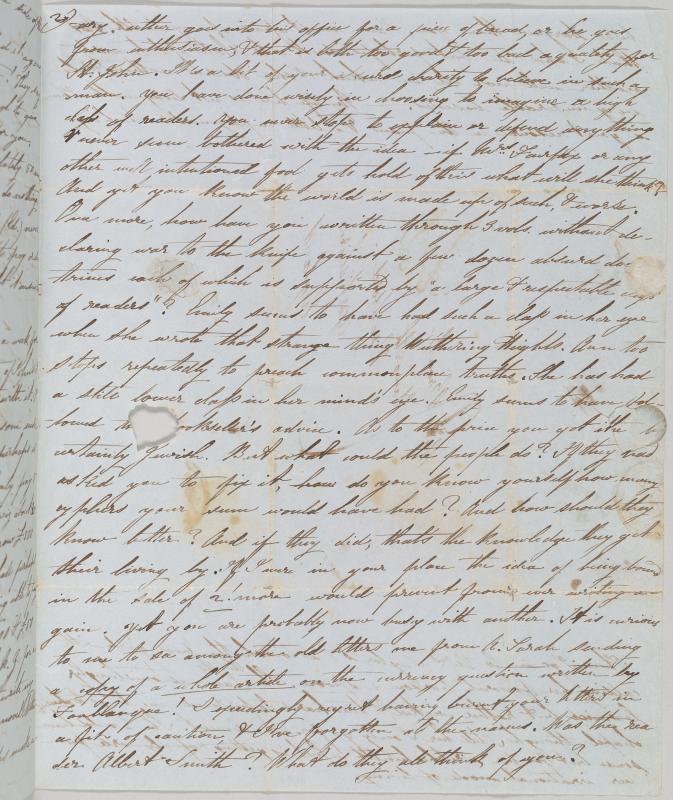 ary either goes into his office for a piece of bread, or he goes
from enthusiasm, & that is both too good & too bad a quality for
St. John. It's a bit of your absurd charity to believe in such a
man. You have done wisely in choosing to imagine a high
class of readers. You never stop to explain or defend anything
& never seem bothered with the idea – if Mrs Fairfax or any
other well intentioned fool gets hold of this what will she think?
And yet you know the world is made up of such, & worse.
Once more, how have you written through 3 vols. without de-
claring war to the knife against a few dozen absurd doc-
trines each of which is supported by "a large & respectable class
of readers"? Emily seems to have had such a class in her eye
when she wrote that strange thing Wuthering Heights. Ann too
stops repeatedly to preach commonplace truths. She has had
a still lower class in her mind's eye. Emily seems to have fol-
lowed bookseller's advice. As to the price you got it
certainly Jewish. But what could the people do? If they had
asked you to fix it how do you know yourself how many
cyphers your sum would have had? And how should they
know better? And if they did, that's the knowledge they get
their living by. If I were in your place the idea of being bound
in the sale of 2! more would prevent from ever writing a-
gain. Yet you are probably now busy with another. It is curious
to me to see among the old letters one from A. Sarah sending
a copy of a whole article on the currency question written by
Fonblanque! I exceedingly regret having burnt your letters in
a fit of caution, & I've forgotten all the names. Was the rea
der Albert Smith? What do they all think of you?